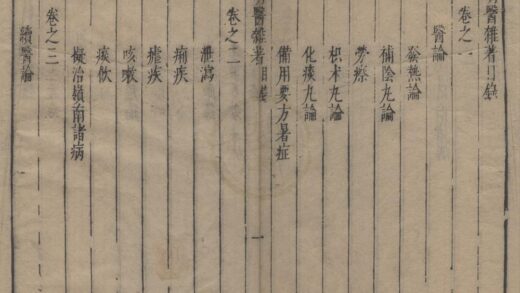 醫雜著目錄
卷之一
醫論
發熱論
補陰丸論
勞瘵
枳朮丸論
化痰丸論
備用要方暑症
醫雜著 目錄 一
卷之二
泄瀉
痢疾
瘧疾
咳嗽
痰飲
擬治嶺南諸病
卷之三
續醫論